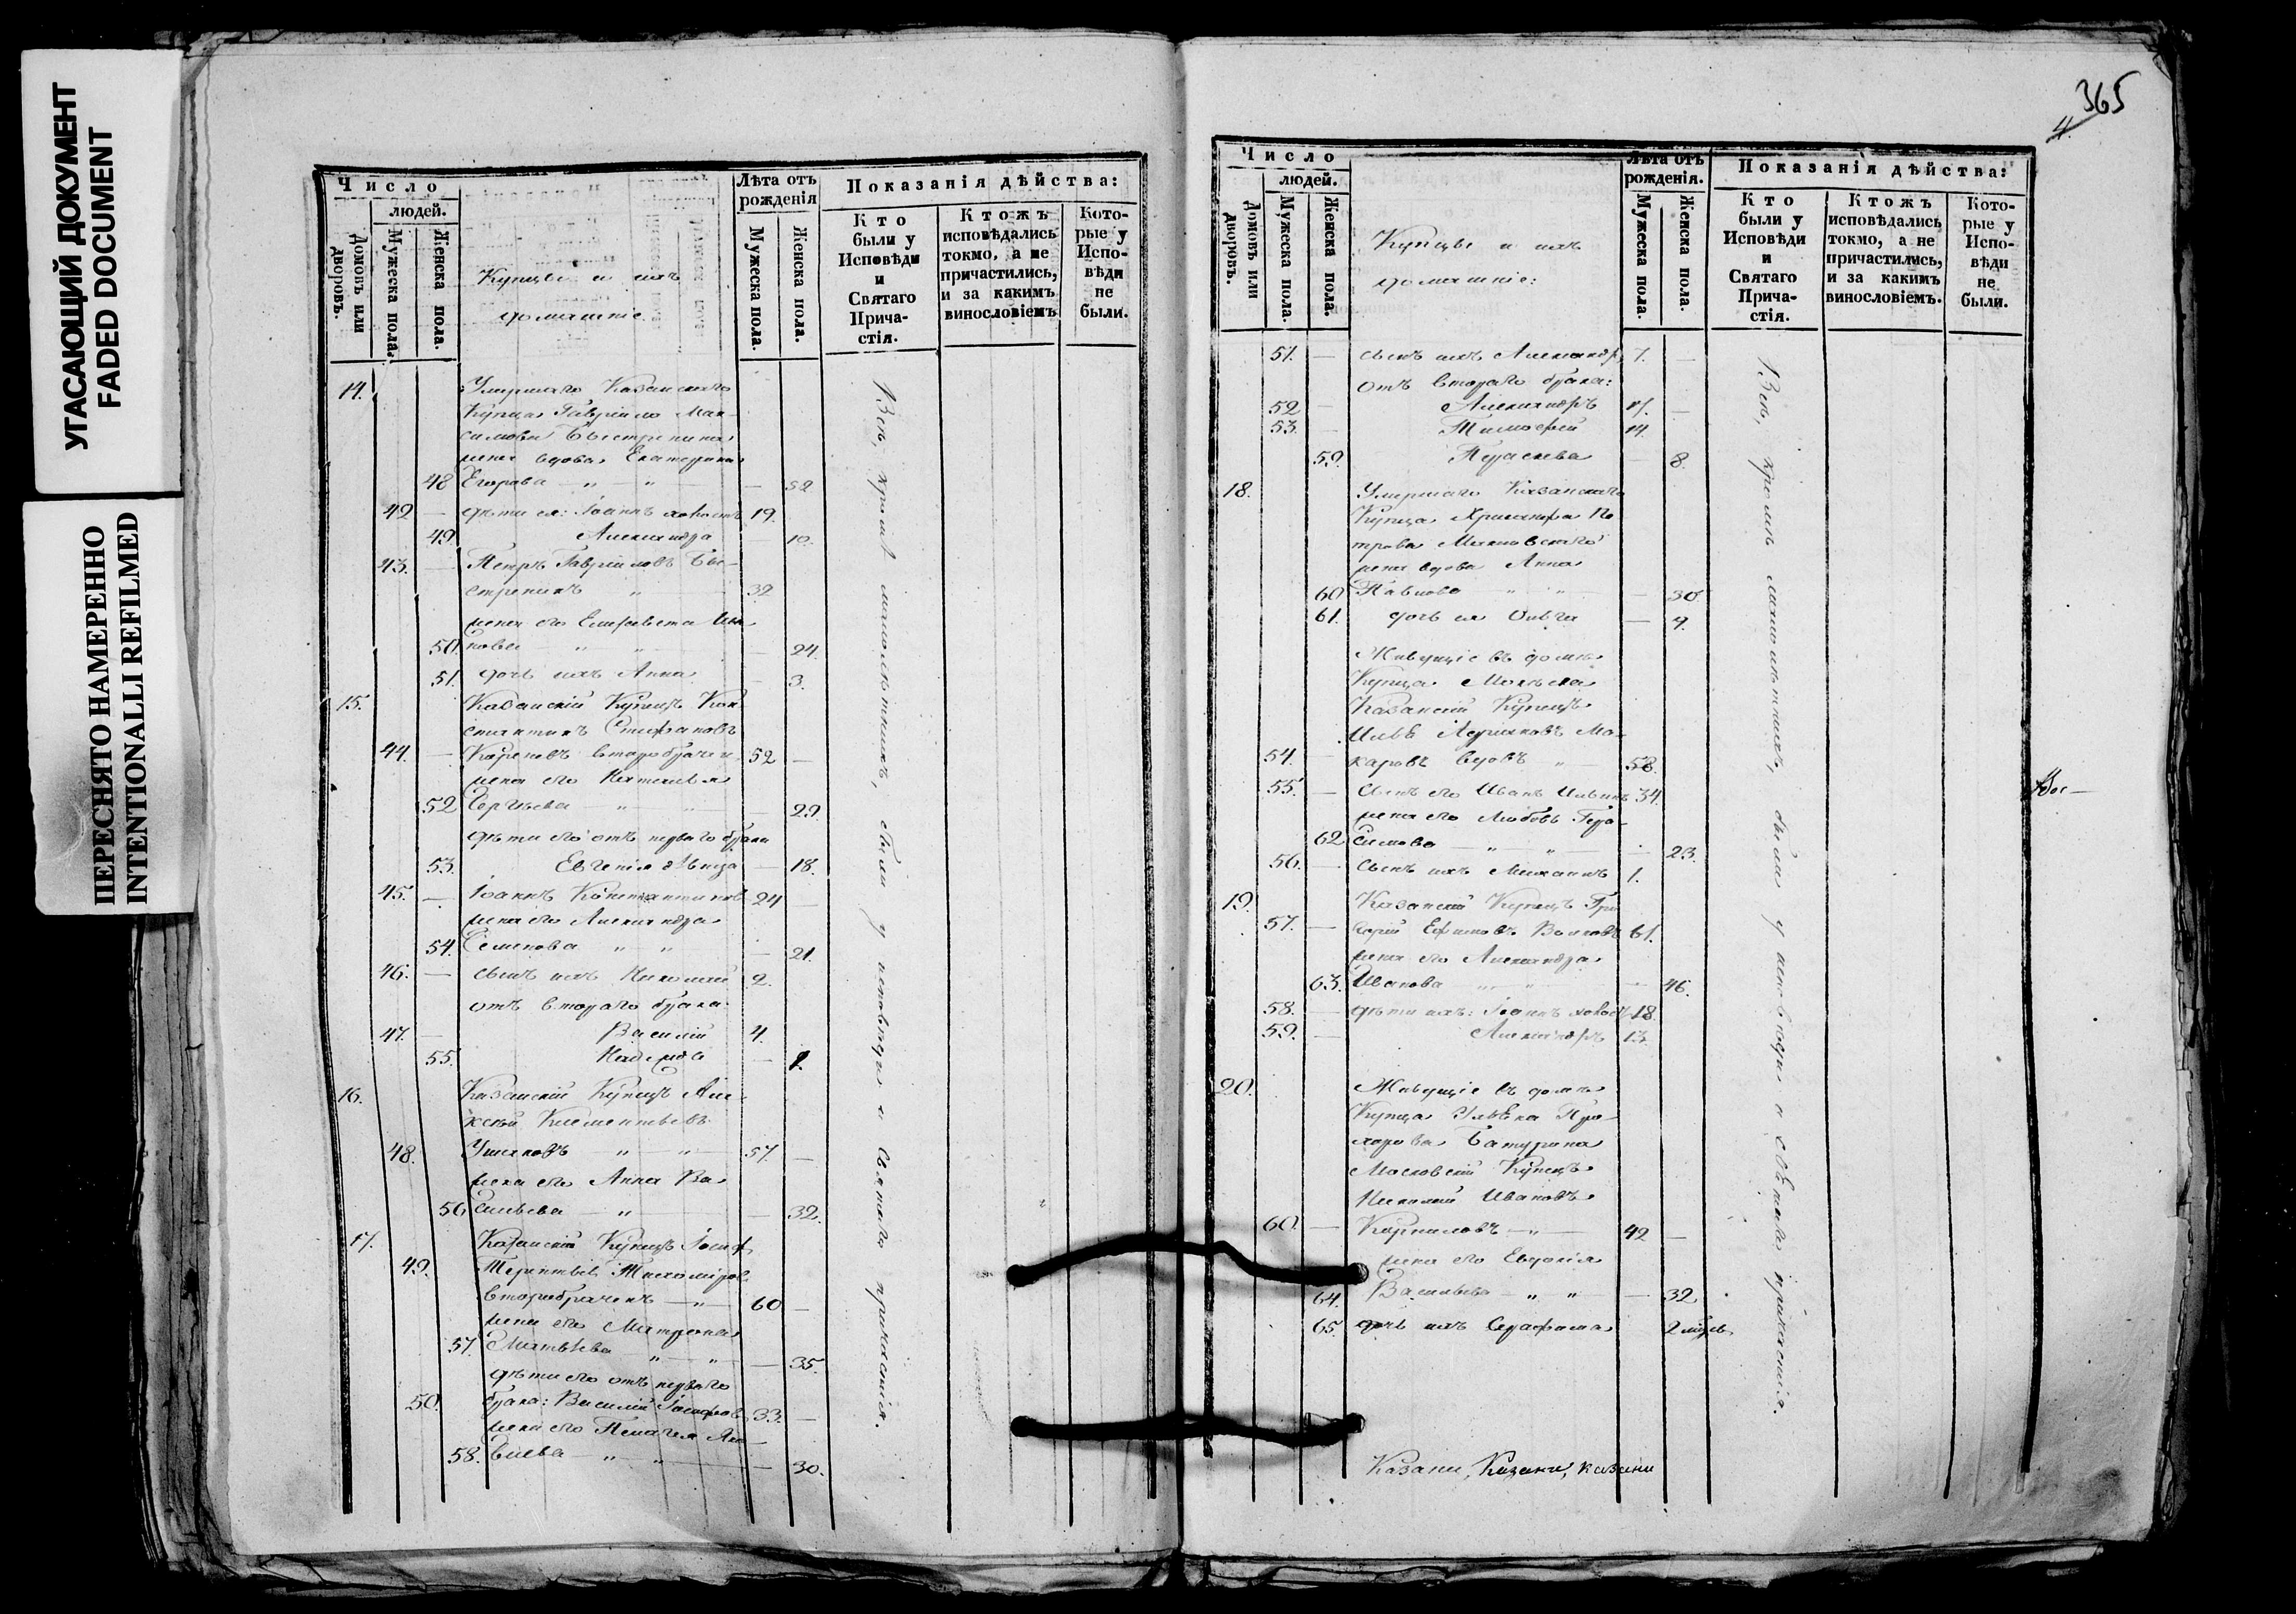 УГАСАЮЩИЙ ДОКУМЕНТ
FADED DOCUMENT
ПЕРЕСНЯТО НАМЕРЕННО
INTENTIONALLI REFILMED
Число
людей.
Домовъ или дворовъ.
Мужеска пола.
Женска пола.
Купцы и ихъ
домашніе.
Лѣта отъ
рожденія
Мужеска пола.
Женска пола.
Показанія дѣйства:
Кто
были у
Исповѣди
и
Святаго
Прича-
стія.
Ктожъ
исповѣдались
токмо, а не
причастились,
и за какимъ
винословіемъ
Кото-
рые у
Испо-
вѣди
не
были.
14. Умершаго Казанскаго
Купца Гавріило Мак-
симова Быстренина
жена вдова Екатерина
48 Егорова — „ — „ — 52
42 — дѣти ея: Іоаннъ холостъ 19.
49. Александра — 10.
43. — Петръ Гавріиловъ Бы-
стренинъ „ — 32
жена его Елисавета Ива
50. новна „ „ — 24.
51. дочь ихъ Анна — 3.
15. Казанскій Купецъ Кон
стантинъ Стефановъ
44. — второбрачен. 52 —
жена его Наталья
52 Сергѣева — „ — „ — 29.
дѣти его отъ перваго брака
53. Евгенія дѣвица — 18.
45. — Іоаннъ Константинов 24 —
жена его Александра
54. Семенова „ „ — 21.
46. — сынъ ихъ Николай 2.
отъ втораго брака.
47. — Василій 4.
55. Надежда — 1.
16. Казанскій Купецъ Але-
ксѣй Климентьевъ
48. Ушаковъ — „ — „ — 57. —
жена его Анна Ва
56 сильева — „ — 32.
17. Казанскій Купецъ Іосиф
49. Терентьев Тихоміров
второбраченъ — „ — 60 —
жена его Матрона
57 Матвѣева „ — „ — 35.
дѣти его отъ перваго
50. брака: Василій Іосифов 33. —
жена его Пелагея Яко
58. влева — „ — „ — 30.
Всѣ, кромѣ малолѣтнихъ, были у исповѣди и Святаго причастія.
365
4.
Число
людей.
Домовъ или дворовъ.
Мужеска пола.
Женска пола.
Купцы и ихъ
домашніе:
Лѣта отъ
рожденія.
Мужеска пола.
Женска пола.
Показанія дѣйства:
Кто
были у
Исповѣди
и
Святаго
Прича-
стія.
Ктожъ
исповѣдались
токмо, а не
причастились,
и за какимъ
винословіемъ.
Кото-
рые у
Испо-
вѣди
не
были.
51. — сынъ ихъ Александр 7. —
отъ втораго брака:
52 — Александръ —
53. — Тимофей 14.
59. Параскева — 8.
18. Умершаго Казанскаго
Купца Пе
трова
жена вдова Анна
60 Павлова „ „ — 30
61. дочь ея Ольга —
Живущіе въ домѣ
Купца
Казанскій Купецъ
54. — каровъ вдовъ „ — 58.
55. — Сынъ его Иванъ Ильинъ 34.
жена его Любовь Гера-
62 симова — „ — „ — 23.
56. — Сынъ ихъ Михаилъ 1.
19. Казанскій Купецъ Гри
57. — горій Ефимовъ Волковъ 61.
жена его Александра
63. Иванова „ „ — 46.
58. — дѣти ихъ: Іоаннъ холост 18.
59. — Александръ 13.
20. Живущіе въ домѣ
Купца Про-
хорова Батурина
Московскій Купецъ
Николай Ивановъ
60. — Корниловъ — „ — 42 —
жена его Евдокія
64. Васильева — „ „ — 32
65. дочь ихъ Серафима 2 мѣсяц.
Казани, Казани, Казани
Всѣ, кромѣ малолѣтнихъ, были у исповѣди и Святаго причастія.